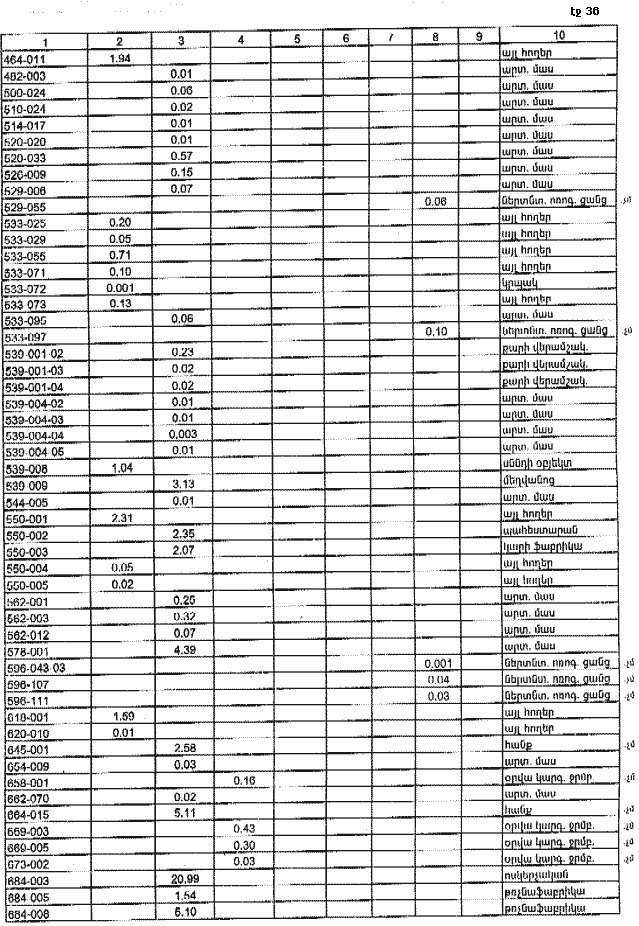 էջ 36
1 2 3 4 5 6 7 8 9 10
464-011 1.94 այլ հողեր
482-003 0.01 արտ. մաս
500-024 0.06 արտ. մաս
510-024 0.02 արտ. մաս
514-017 0.01 արտ. մաս
520-020 0.01 արտ. մաս
520-033 0.57 արտ. մաս
526-009 0.15 արտ. մաս
529-006 0.07 արտ. մաս
529-055 0.06 ներտնտ. ոռոգ. ցանց
533-025 0.20 այլ հողեր
533-029 0.05 այլ հողեր
533-055 0.71 այլ հողեր
533-071 0.10 այլ հողեր
533-072 0.001 կրպակ
533-073 0.13 այլ հողեր
533-095 0.06 արտ. մաս
533-097 0.10 ներտնտ. ոռոգ. ցանց
539-001-02 0.23 քարի վերամշակ.
539-001-03 0.02 քարի վերամշակ.
539-001-04 0.02 քարի վերամշակ.
539-004-02 0.01 արտ. մաս
539-004-03 0.01 արտ. մաս
539-004-04 0.003 արտ. մաս
539-004-05 0.01 արտ. մաս
539-008 1.04 սննդի օբյեկտ
539-009 3.13 մեղվանոց
544-005 0.01 արտ. մաս
550-001 2.31 այլ հողեր
550-002 2.35 պահեստարան
550-003 2.07 կարի ֆաբրիկա
550-004 0.05 այլ հողեր
550-005 0.02 այլ հողեր
562-001 0.25 արտ. մաս
562-003 0.32 արտ. մաս
562-012 0.07 արտ. մաս
578-001 4.39 արտ. մաս
596-043-03 0.001 ներտնտ. ոռոգ. ցանց
596-107 0.04 ներտնտ. ոռոգ. ցանց
596-111 0.03 ներտնտ. ոռոգ. ցանց
618-001 1.59 այլ հողեր
620-010 0.01 այլ հողեր
645-001 2.58 հանք
654-009 0.03 արտ. մաս
658-001 0.16 օրվա կարգ. ջրմբ.
662-070 0.02 արտ. մաս
664-015 5.11 հանք
669-003 0.43 օրվա կարգ. ջրմբ.
669-005 0.30 օրվա կարգ. ջրմբ.
673-002 0.03 օրվա կարգ. ջրմբ.
684-003 20.99 ոսկերչական
684-005 1.54 թռչնաֆաբրիկա
684-008 6.10 թռչնաֆաբրիկա